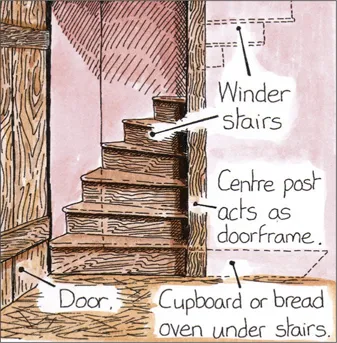 Winder
stairs
Centre post
acts as
doorframe.
Door.
Cupboard or bread
oven under stairs.